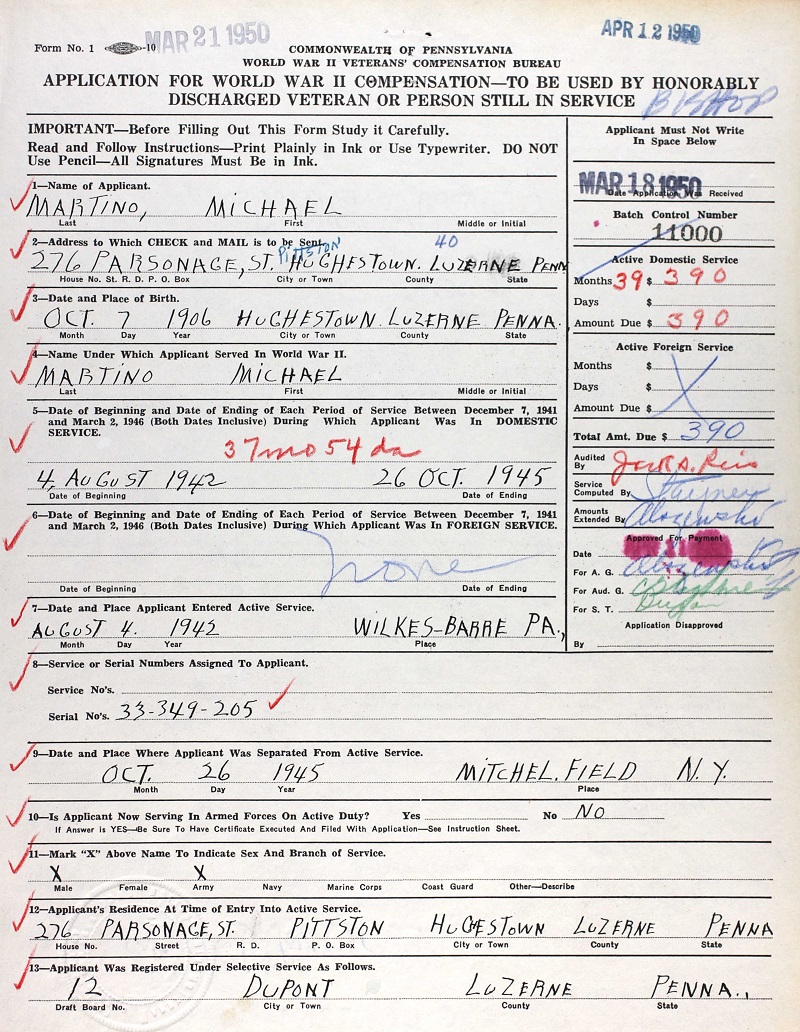 MAR 21 1950
APR 12 1950
Form No. 1 -10
COMMONWEALTH OF PENNSYLVANIA
WORLD WAR II VETERANS' COMPENSATION BUREAU
APPLICATION FOR WORLD WAR II COMPENSATION—TO BE USED BY HONORABLY
DISCHARGED VETERAN OR PERSON STILL IN SERVICE
BISHOP
IMPORTANT—Before Filling Out This Form Study it Carefully.
Read and Follow Instructions—Print Plainly in Ink or Use Typewriter. DO NOT
Use Pencil—All Signatures Must Be in Ink.
1—Name of Applicant.
MARTINO, MICHAEL
Last First Middle or Initial
2—Address to Which CHECK and MAIL is to be Sent.
PITTSTON 40
276 PARSONAGE, ST. HUGHESTOWN. LUZERNE PENN
House No. St. R. D. P. O. Box City or Town County State
3—Date and Place of Birth.
OCT. 7 1906 HUGHESTOWN. LUZERNE PENNA.
Month Day Year City or Town County State
4—Name Under Which Applicant Served In World War II.
MARTINO MICHAEL
Last First Middle or Initial
5—Date of Beginning and Date of Ending of Each Period of Service Between December 7, 1941
and March 2, 1946 (Both Dates Inclusive) During Which Applicant Was In DOMESTIC
SERVICE.
37 mo 54 da
4, AUGUST 1942 26 OCT. 1945
Date of Beginning Date of Ending
6—Date of Beginning and Date of Ending of Each Period of Service Between December 7, 1941
and March 2, 1946 (Both Dates Inclusive) During Which Applicant Was In FOREIGN SERVICE.
none
Date of Beginning Date of Ending
7—Date and Place Applicant Entered Active Service.
AUGUST 4. 1942 WILKES-BARRE PA.,
Month Day Year Place
Applicant Must Not Write
In Space Below
MAR 18 1950
Date Application Was Received
Batch Control Number
11000
Active Domestic Service
Months 39 $ 390
Days $
Amount Due $ 390
Active Foreign Service
Months $
Days $
Amount Due $
Total Amt. Due $ 390
Audited
By
Service
Computed By
Amounts
Extended By
Approved For Payment
Date
For A. G.
For Aud. G.
For S. T.
Application Disapproved
By
8—Service or Serial Numbers Assigned To Applicant.
Service No's.
Serial No's. 33-349-205
9—Date and Place Where Applicant Was Separated From Active Service.
OCT. 26 1945 MITCHEL. FIELD N. Y.
Month Day Year Place
10—Is Applicant Now Serving In Armed Forces On Active Duty? Yes No NO
If Answer is YES—Be Sure To Have Certificate Executed And Filed With Application—See Instruction Sheet.
11—Mark "X" Above Name To Indicate Sex and Branch of Service.
X X
Male Female Army Navy Marine Corps Coast Guard Other—Describe
12—Applicant's Residence At Time of Entry Into Active Service.
276 PARSONAGE, ST. PITTSTON HUGESTOWN LUZERNE PENNA
House No. Street R. D. P. O. Box City or Town County State
13—Applicant Was Registered Under Selective Service As Follows.
12 DUPONT LUZERNE PENNA.,
Draft Board No. City or Town County State